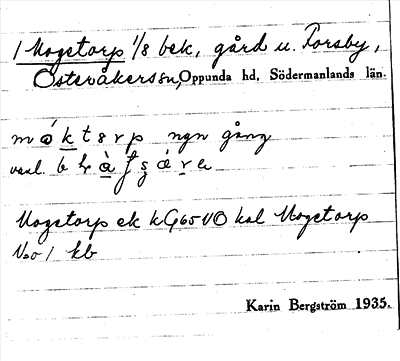 1 Mogetorp 1/8 bek, gård u. Forsby,
Österåkers sn, Oppunda hd, Södermanlands län.
m ó k t s r p ngn gång
vanl.
Mogetorp ek kG65VO kal Mogetorp
No 1 kb
Karin Bergström 1935.